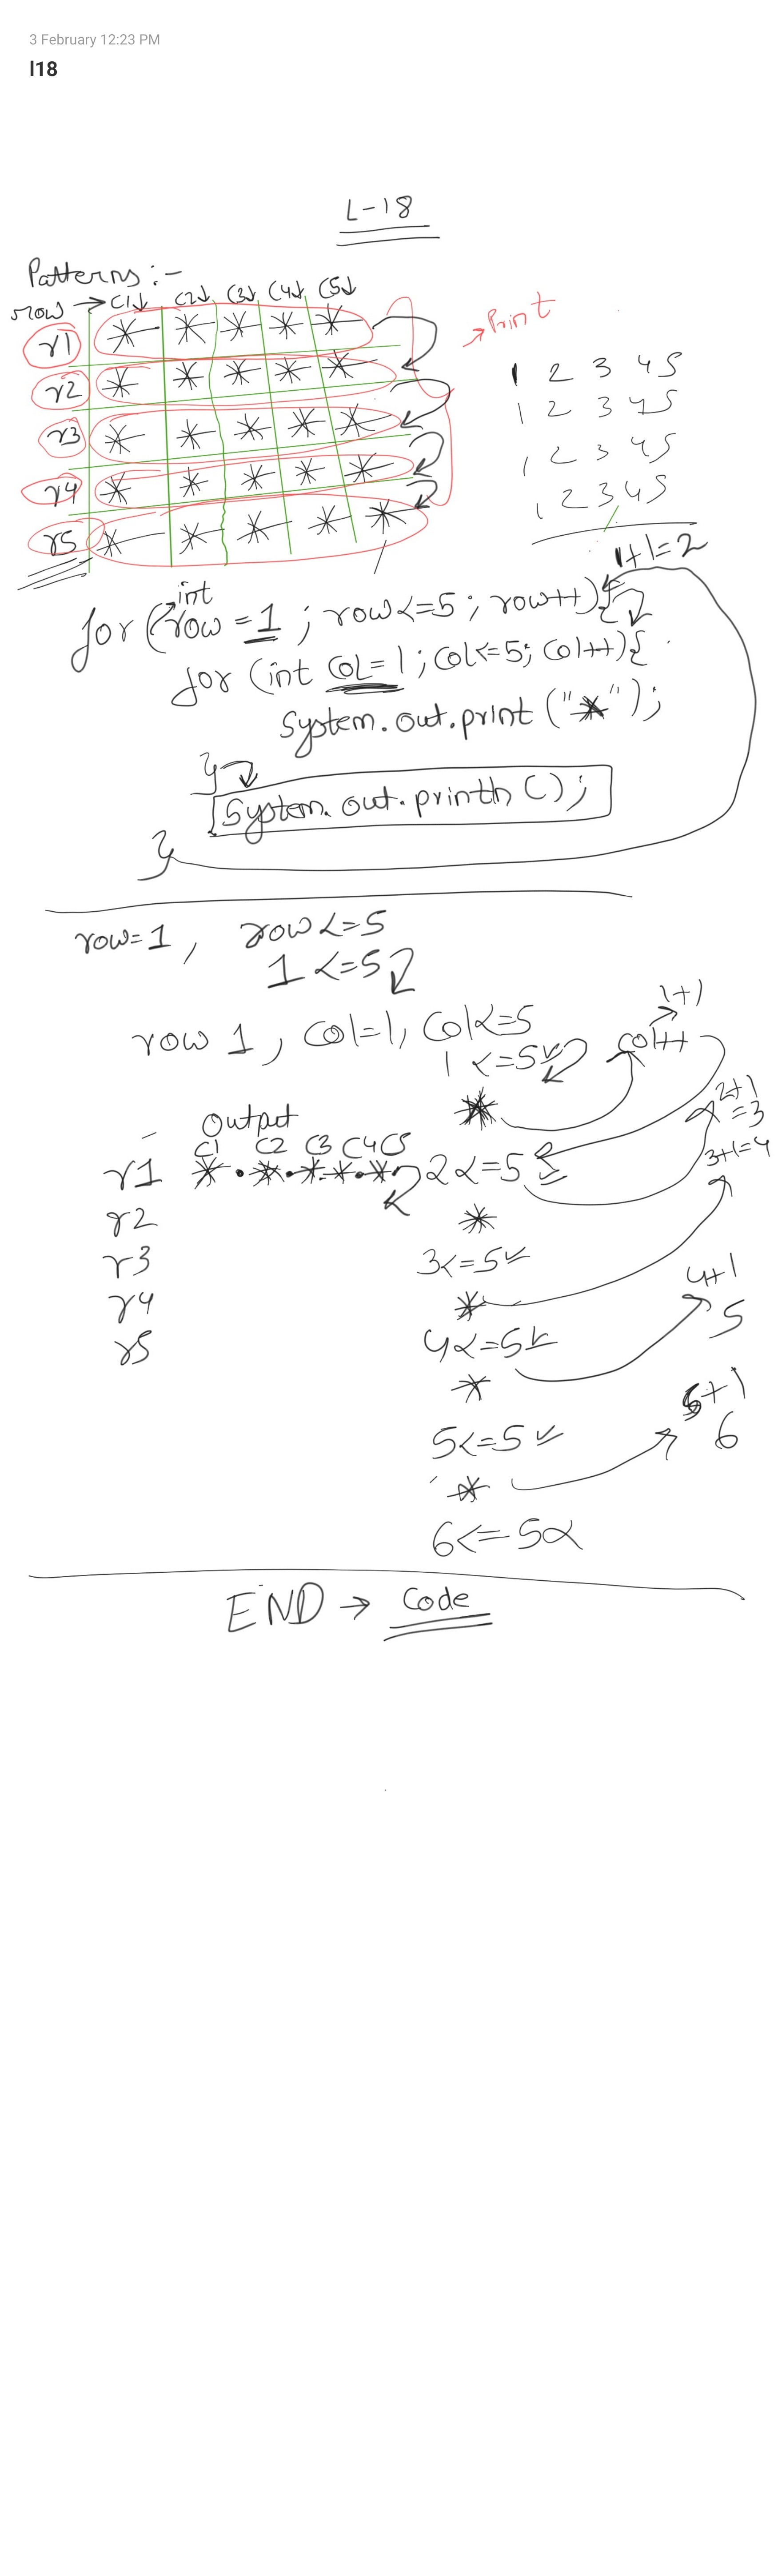 3 February 12:23 PM
l18
L-18
Patterns :-
row → C1↓ C2↓ C3↓ C4↓ C5↓
r1 * * * * *
→ Print
r2 * * * * *
r3 * * * * *
r4 * * * * *
r5 * * * * *
1 2 3 4 5
1 2 3 4 5
1 2 3 4 5
1 2 3 4 5
1+1=2
for (int row = 1 ; row<=5 ; row++) {
for (int col=1 ; col<=5; col++) {
System.out.print ("*");
}
System.out.println();
}
row=1, row<=5
1<=5
row 1, col=1, col<=5
1<=5 ✓
col++
1+1
*
2+1
=3
Output
C1 C2 C3 C4 C5
r1 *.*.*.*.*
2<=5
3+1=4
r2
*
r3
3<=5 ✓
r4
*
4+1
5
r5
4<=5 ✓
*
5+1
6
5<=5 ✓
*
6<=5
END → Code